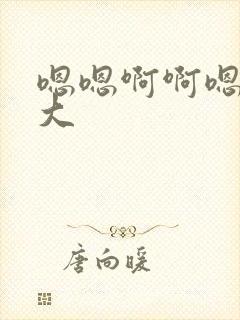 嗯嗯啊啊嗯
大
唐向暖